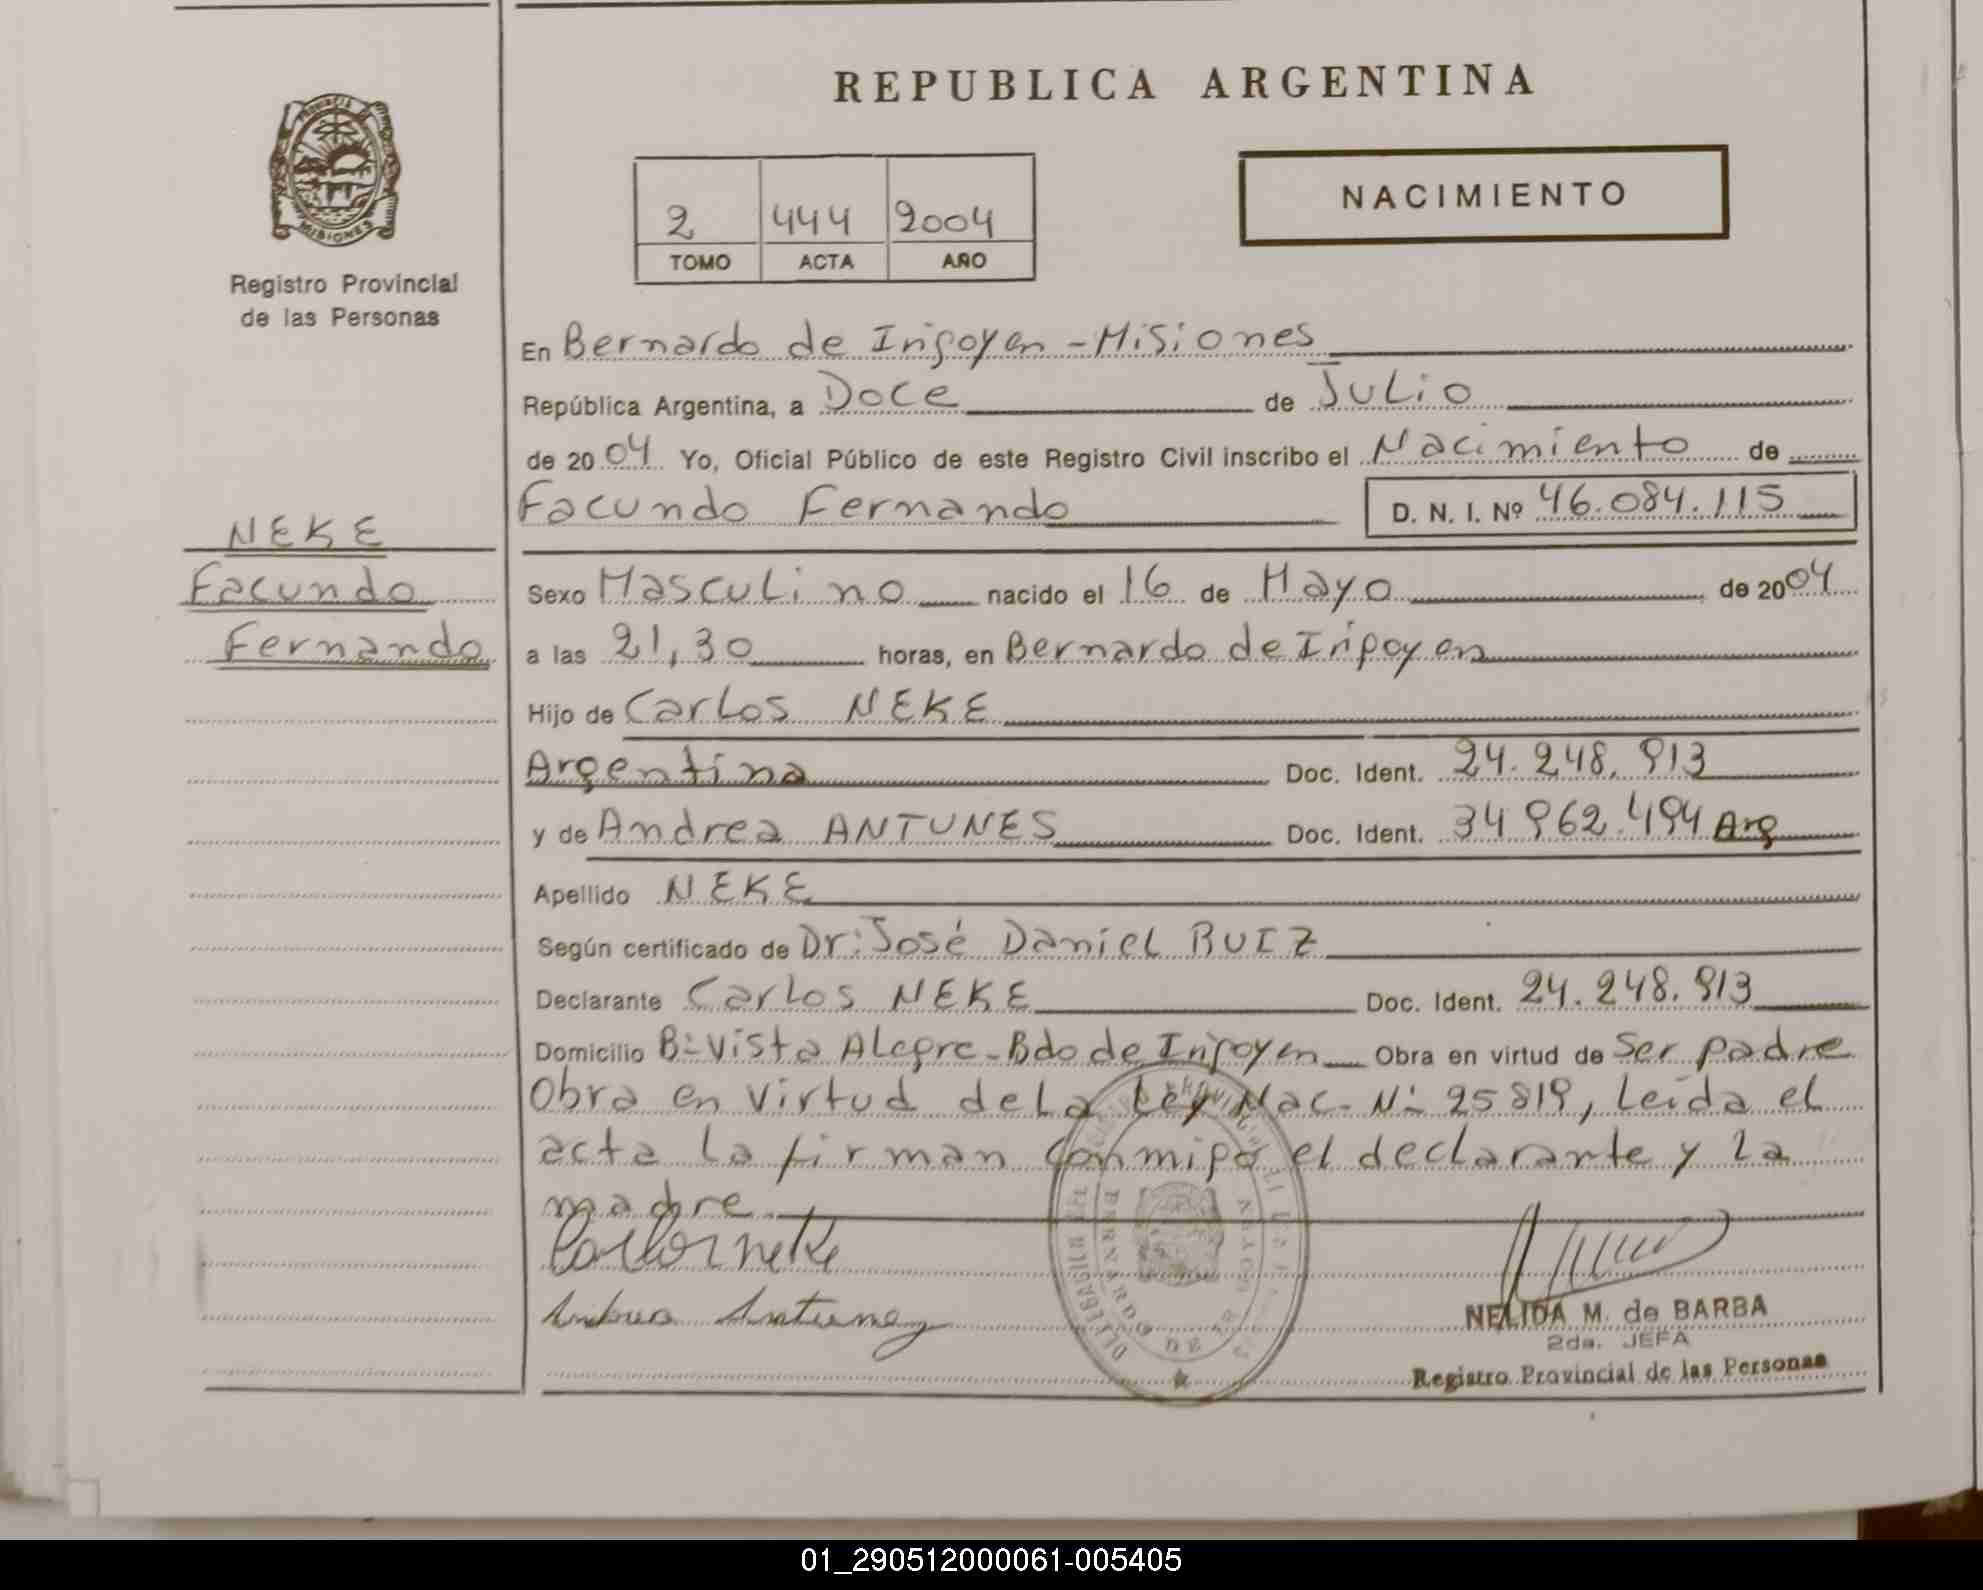 REPUBLICA ARGENTINA
PROVINCIA DE MISIONES
Registro Provincial
de las Personas
2 444 2004
TOMO ACTA AÑO
NACIMIENTO
En Bernardo de Irigoyen - Misiones
República Argentina, a Doce de Julio
de 2004 Yo, Oficial Público de este Registro Civil inscribo el Nacimiento de
Facundo Fernando D. N. I. Nº 46.084.115
NEKE
Facundo
Fernando
Sexo Masculino nacido el 16 de Mayo de 2004
a las 21,30 horas, en Bernardo de Irigoyen
Hijo de Carlos NEKE
Argentina Doc. Ident. 24.248.913
y de Andrea ANTUNES Doc. Ident. 34 962.494 Arg
Apellido NEKE
Según certificado de Dr: José Daniel RUIZ
Declarante Carlos NEKE Doc. Ident. 24.248.913
Domicilio Bº Vista Alegre - Bdo de Irigoyen Obra en virtud de Ser padre
Obra en virtud de la Ley Nac. Nº 25819, Leida el
acta la firman conmigo el declarante y la
madre
Antunez
NELIDA M. de BARBA
2da. JEFA
Registro Provincial de las Personas
BERNARDO DE IRIGOYEN
01_290512000061-005405